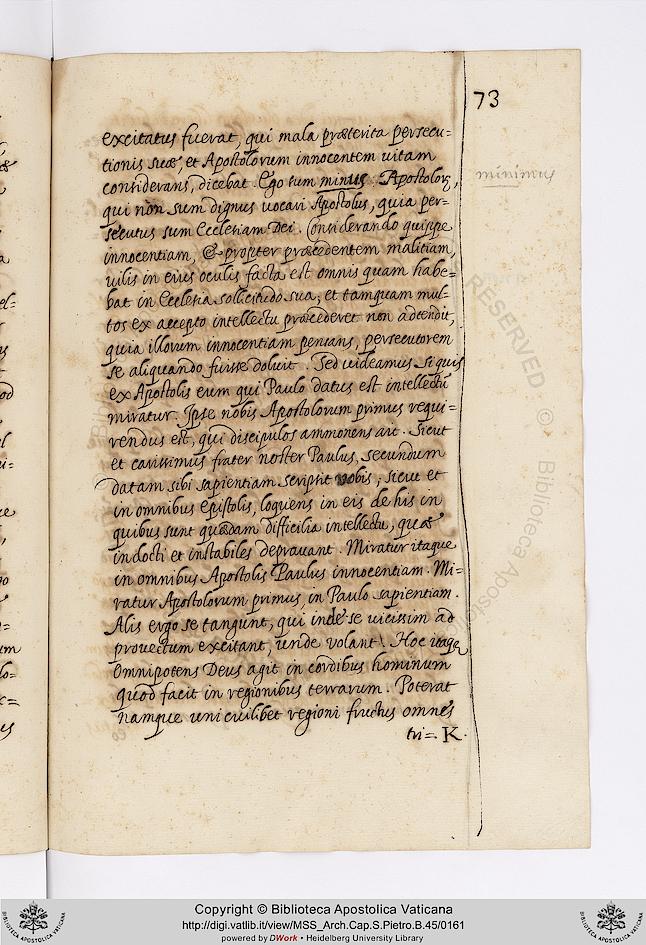 73
excitatus fuerat, qui mala præterita persecu=
tionis suæ, et Apostolorum innocentem uitam
considerans, dicebat. Ego sum minus Apostolorꝝ,
minimus
qui non sum dignus uocari Apostolus, quia per=
secutus sum Ecclesiam Dei. Considerando quippe
innocentiam, & propter præcedentem malitiam,
uilis in eius oculis facta est omnis quam habe=
bat in Ecclesia sollicitudo sua, et tamquam mul=
tos ex accepto intellectu præcederet non adtendit,
quia illorum innocentiam pensans, persecutorem
se aliquando fuisse doluit. Sed uideamus si quis
ex Apostolis eum qui Paulo datus est intellectũ
miratur. Ipse nobis Apostolorum primus requi=
rendus est, qui discipulos ammonens ait. Sicut
et carissimus frater noster Paulus secundum
datam sibi sapientiam scripsit vobis, sicut et
in omnibus epistolis, loquens in eis de his in
quibus sunt quædam difficilia intellectu, quæ
indocti et instabiles deprauant. Miratur itaque
in omnibus Apostolis Paulus innocentiam. Mi=
ratur Apostolorum primus in Paulo sapientiam.
Alis ergo se tangunt, qui inde se uicissim ad
prouectum excitant, unde volant. Hoc itaqꝫ
Omnipotens Deus agit in cordibus hominum
quod facit in regionibus terrarum. Poterat
namque unicuilibet regioni fructus omnes
tri= K.
RESERVED © Biblioteca Apostolica
Copyright © Biblioteca Apostolica Vaticana
http://digi.vatlib.it/view/MSS_Arch.Cap.S.Pietro.B.45/0161
powered by DWork • Heidelberg University Library